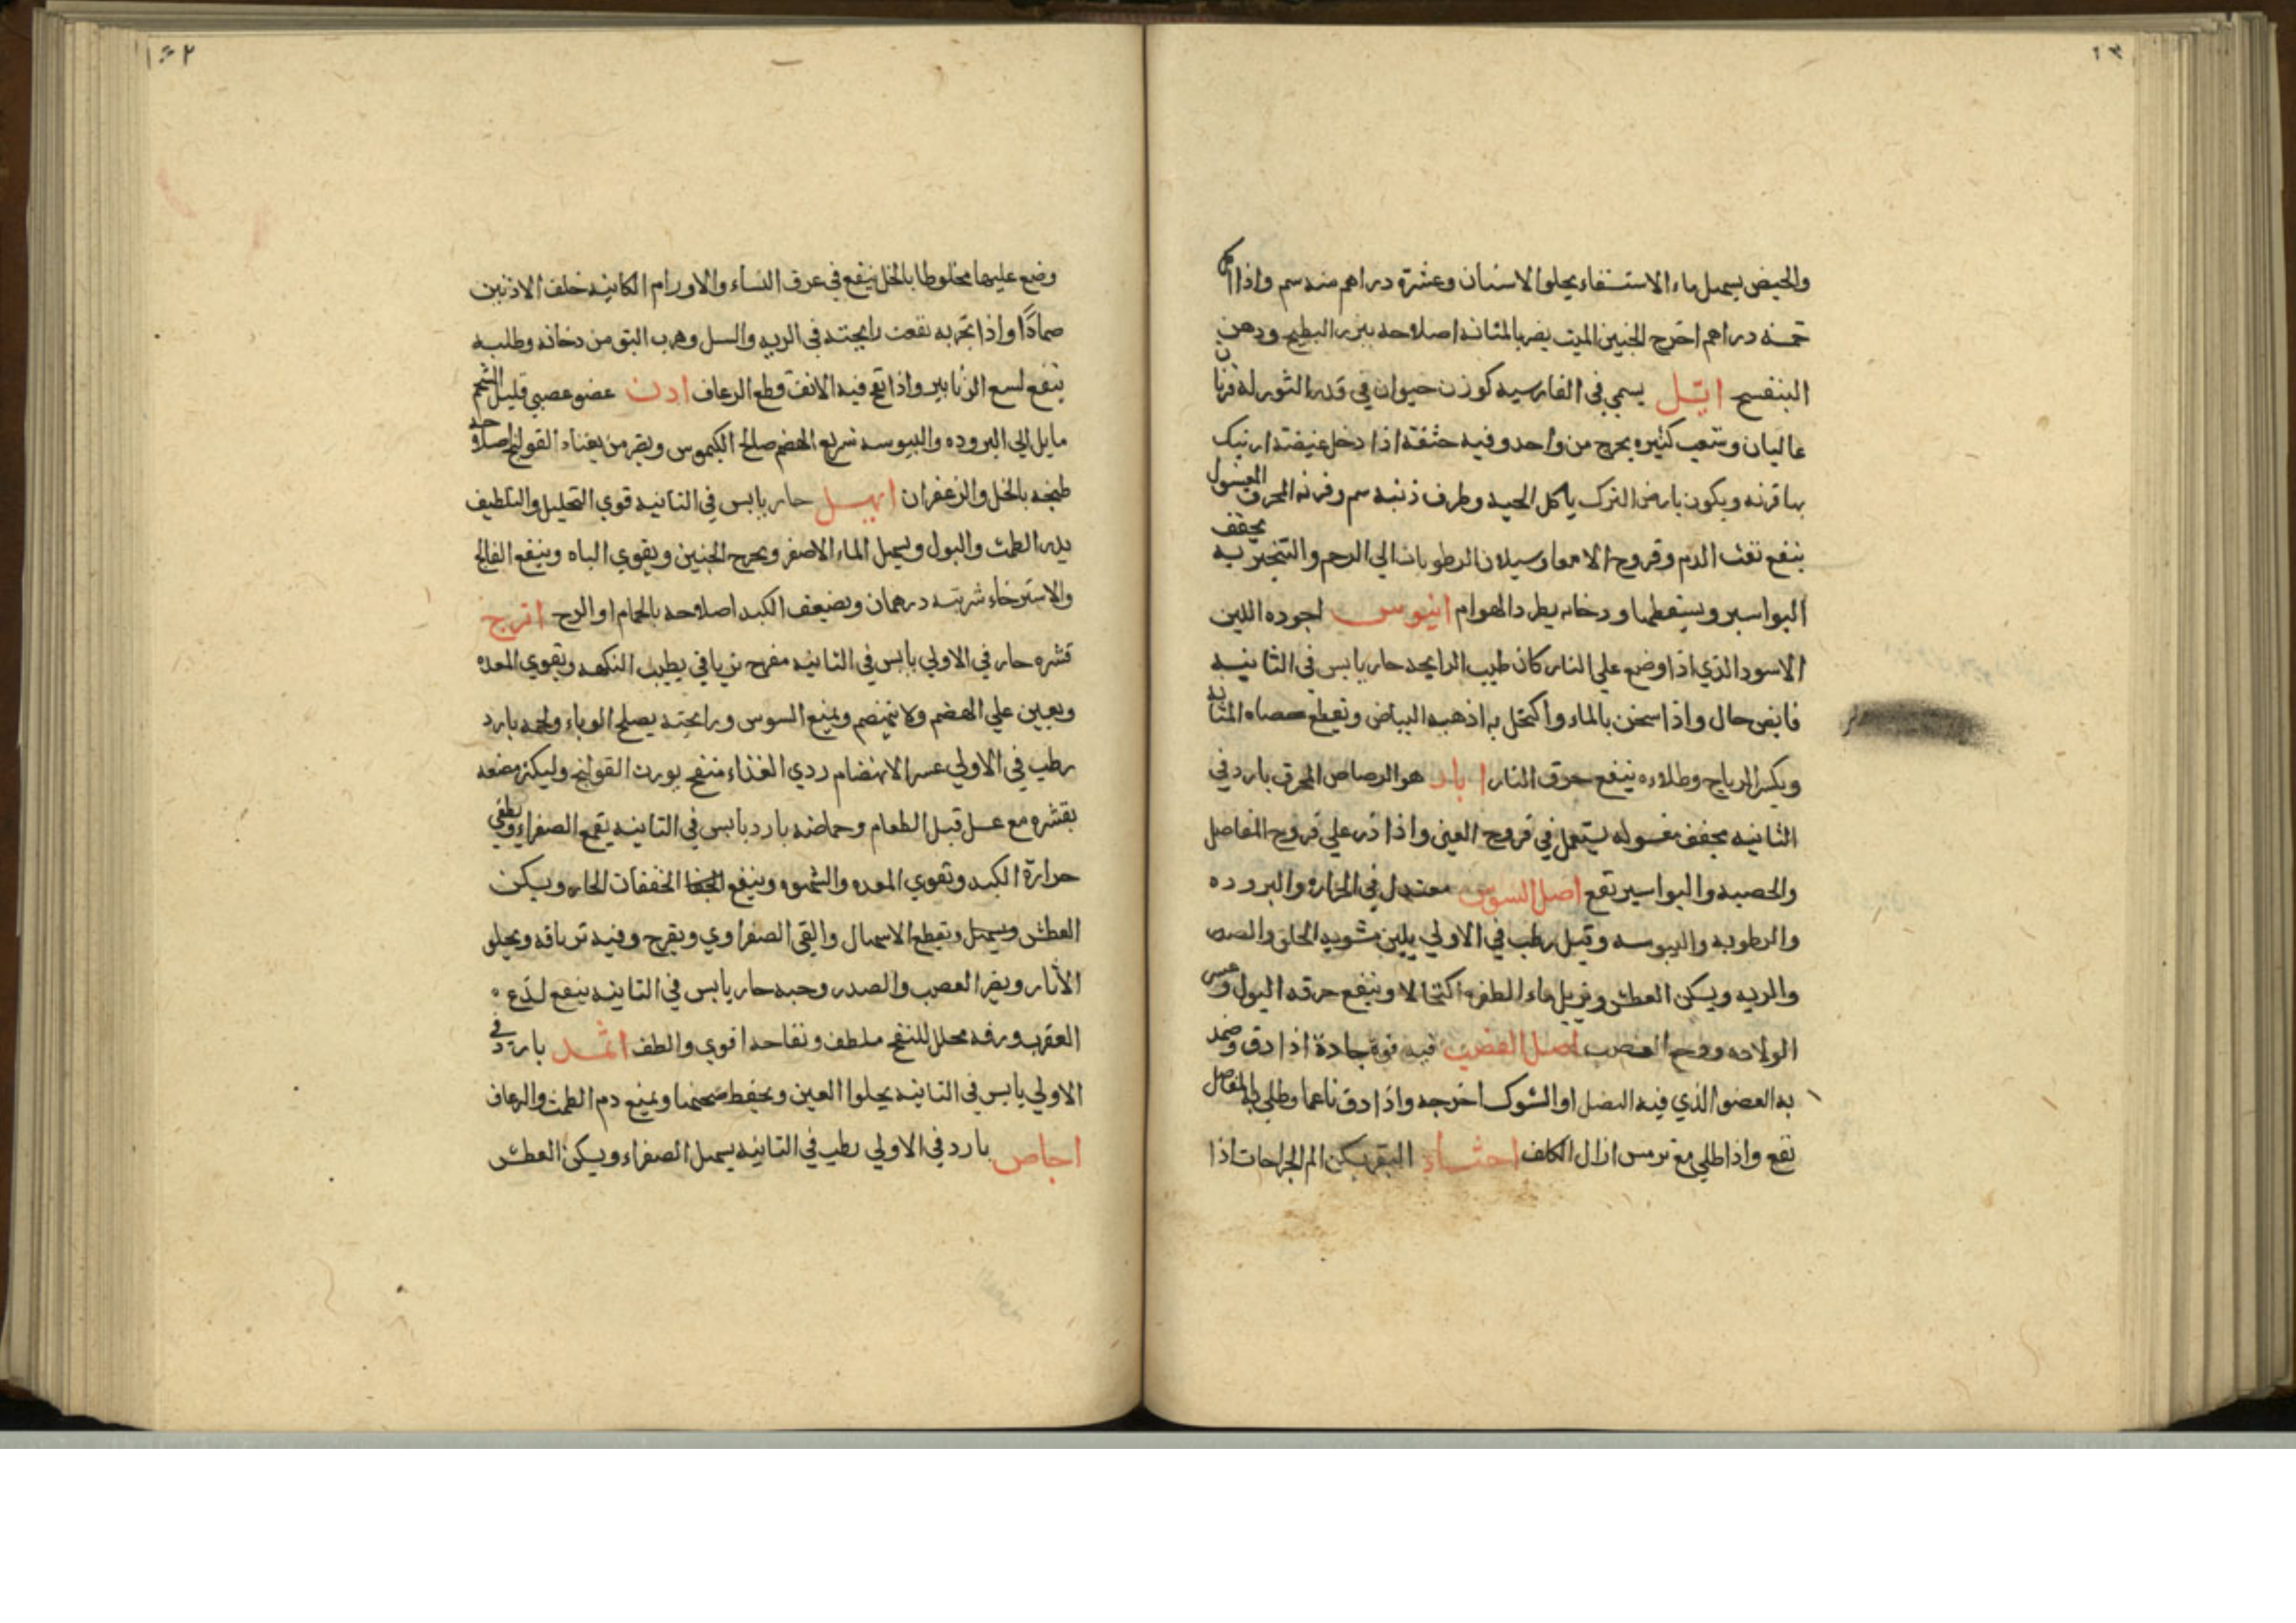 ١٣
والحيض يسهل ماء الاستسقاء يجلوا الاسنان وعشرة دراهم منه سم واذا
خمسه دراهم اخرج الجنين الميت يضر بالمثانه اصلاحه ببزر البطيخ ودهن
البنفسج ايّل يسمي في الفارسيه كوزن حيوان في قدر الثور له قرنان
عاليان وشعب كثيره يخرج من واحد وفيه اذا دخل
بها قرنه ويكون بارض الترك ياكل الحيه وطرف ذنبه سم وقرنه المحرق المغسول
ينفع نفث الدم وقروح الامعا وسيلان الرطوبات الي الرحم والتبخير به يجفف
البواسير ويسقطها ودخانه يطرد الهوام ابنوس اجوده اللين
الاسود الذي اذا وضع علي النار كان طيب الرايحه حار يابس في الثانيه
واذا سحق بالماء واكتحل به اذهب البياض ويقطع حصاه المثانه
ويكسر الرياح وطلاءه ينفع حرق النار ابار هو الرصاص المحرق بارد في
الثانيه يجفف مغسوله يستعمل في قروح العين واذا ذر علي قروح المفاصل
والخصيه والبواسير نفع اصل السوس معتدل في الحراره والبروده
والرطوبه واليبوسه وقيل رطب في الاولي يلين الحلق والصدر
والريه ويسكن العطش ويزيل ماء الظفره اكتحالا وينفع حرقه البول وعسر
الولاده ووجع العصب اصل القصب فيه قوة جاذة اذا دق وضمد
به العضو الذي فيه النصل او الشوك اخرجه واذا دق ناعما وطلي به المفاصل
نفع واذا طلي مع ترمس ازال الكلف احثاء البقر يسكن الم الجراحات اذا
١٤٢
وضع عليها مخلوطا بالخل ينفع في عرق النساء والاورام الكاينه خلف الاذنين
ضمادًا واذا تبخر به نفعت رايحته في الريه والسل وهرب البق من دخانه وطلبه
ينفع لسع الزنابير واذا نفخ فيه الانف قطع الرعاف اذن عضو عصبي قليل الشحم
مايل الي البروده واليبوسه سريع الهضم صالح الكيموس ويضر من يعتاد القولنج اصلاحه
طبخه بالخل والزعفران ابهل حار يابس في الثانيه قوي التحليل والتلطيف
يدر الطمث والبول ويسهل الماء الاصفر ويخرج الجنين ويقوي الباه وينفع الفالج
والاسترخاء شربته درهمان ويضعف الكبد اصلاحه بالحمام او الوج اترج
قشره حار في الاولي يابس في الثانيه مفرح ترياقي يطيب النكهه ويقوي المعده
ويعين علي الهضم ولا ينهضم ويمنع السوس ورايحته يصلح الوباء ولحمه بارد
رطب في الاولي عسر الانهضام ردي الغذاء منفخ يورث القولنج وليكثر مضغه
بقشره مع عسل قبل الطعام وحماضه بارد يابس في الثانيه يقمع الصفراء ويطفي
حرارة الكبد وتقوي المعده والشهوه وينفع الخفقان الحار ويسكن
العطش ويسهل ويقطع الاسهال والقي الصفراوي ويفرح وفيه ترياقه ويجلو
الاثار ويضر العصب والصدر وحبه حار يابس في الثانيه ينفع لدغ
العقرب ورقه محلل للنفخ ملطف وفقاحه اقوي والطف اثمد بارد في
الاولي يابس في الثانيه يجلوا العين ويحفظ صحتها ويمنع دم الطمث والرعاف
اجاص بارد في الاولي رطب في الثانيه يسهل الصفراء ويسكن العطش